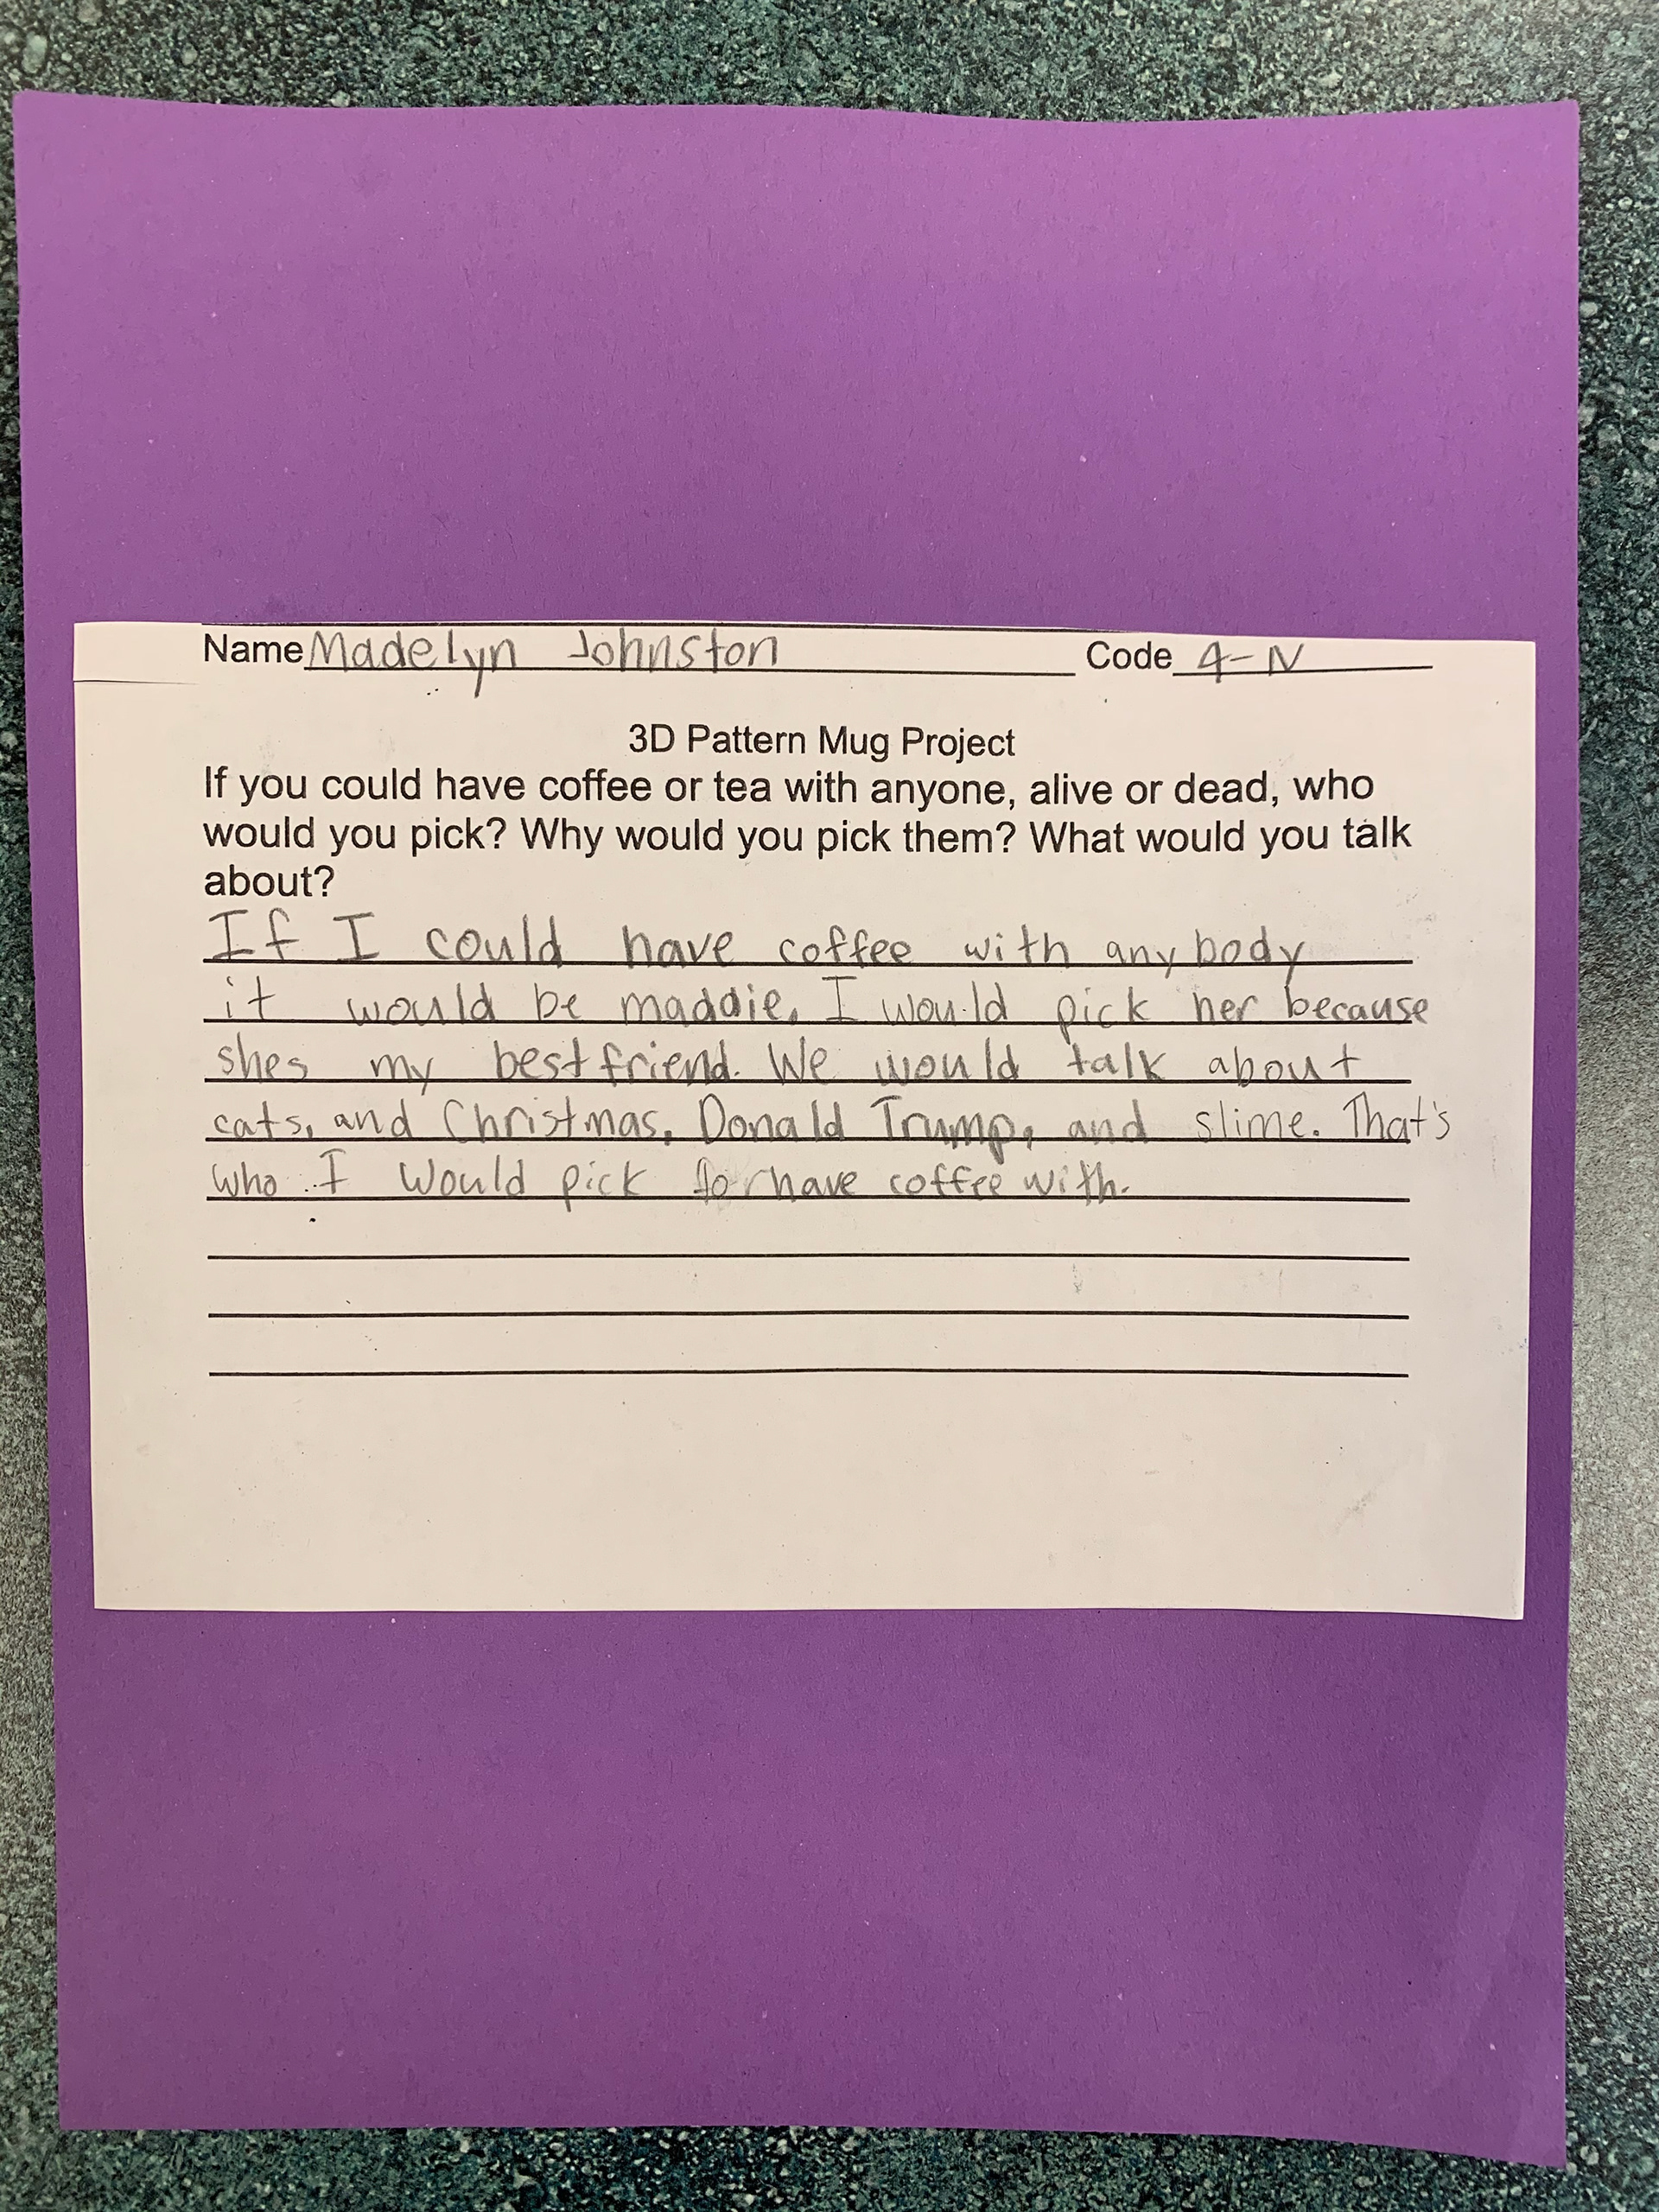 Name Madelyn Johnston Code 4-N
3D Pattern Mug Project
If you could have coffee or tea with anyone, alive or dead, who
would you pick? Why would you pick them? What would you talk
about?
If I could have coffee with anybody
it would be maddie. I would pick her because
shes my best friend. We would talk about
cats, and Christmas, Donald Trump, and slime. That's
who I would pick to have coffee with.